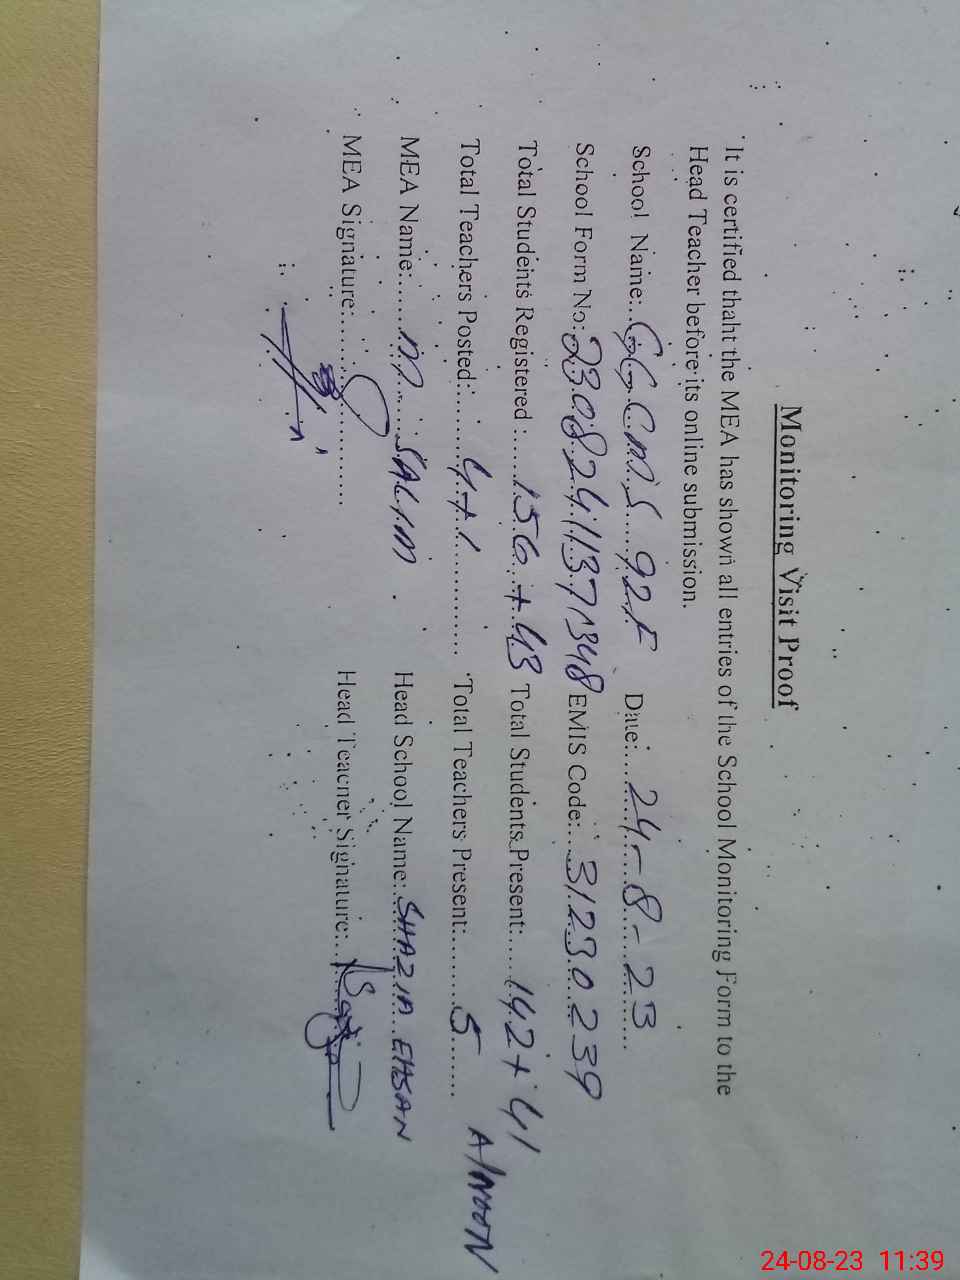 Monitoring Visit Proof
It is certified thaht the MEA has shown all entries of the School Monitoring Form to the
Head Teacher before its online submission.
School Name:..GGCMS 92F Date:....24-8-23
School Form No:23082411371348 EMIS Code:...31230239
Total Students Registered :....156+43 Total Students Present:....142+41
Total Teachers Posted:......4+1............ Total Teachers Present:........5...... A/NOON
MEA Name:......M. SALIM Head School Name:..SHAZIA EHSAN
MEA Signature:.............. Head Teacher Signature:...
24-08-23 11:39